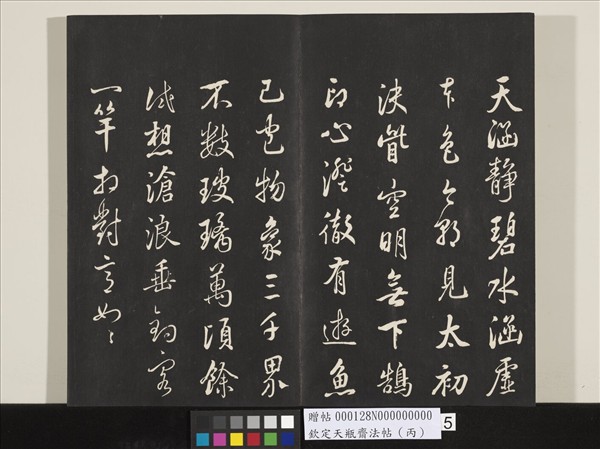 天涵靜碧水涵虛
本色今朝見太初
決眥空明無下鵠
印心澄徹有遊魚
已包物象三千界
不數玻璃萬頃餘
試想滄浪垂釣客
一竿相對意如〻
贈帖 000128N000000000
欽定天瓶齋法帖(丙)
5